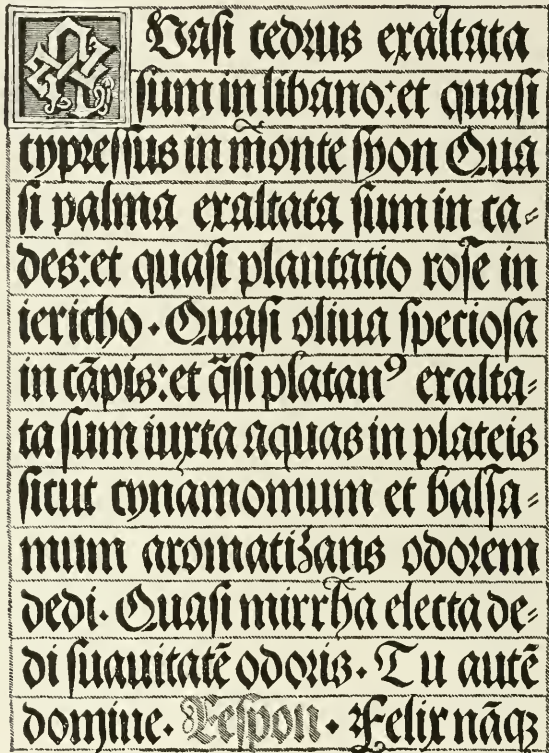 QUasi cedrus exaltata
sum in libano: et quasi
cypressus in mõnte syon Qua
si palma exaltata sum in ca⸗
des: et quasi plantatio rose in
iericho · Quasi oliua speciosa
in cãpis: et q̃si platanꝰ exalta⸗
ta sum iuxta aquas in plateis
sicut cynamomum et balsa⸗
mum aromatizans odorem
dedi · Quasi mirrha electa de⸗
di suauitatẽ odoris · Tu autẽ
domine · Respon · Felix nãqꝫ